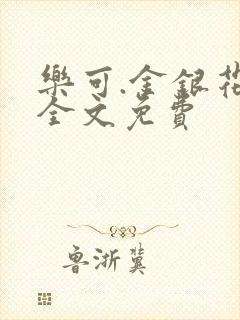 樂可.金銀花
全文免費
魯浙冀